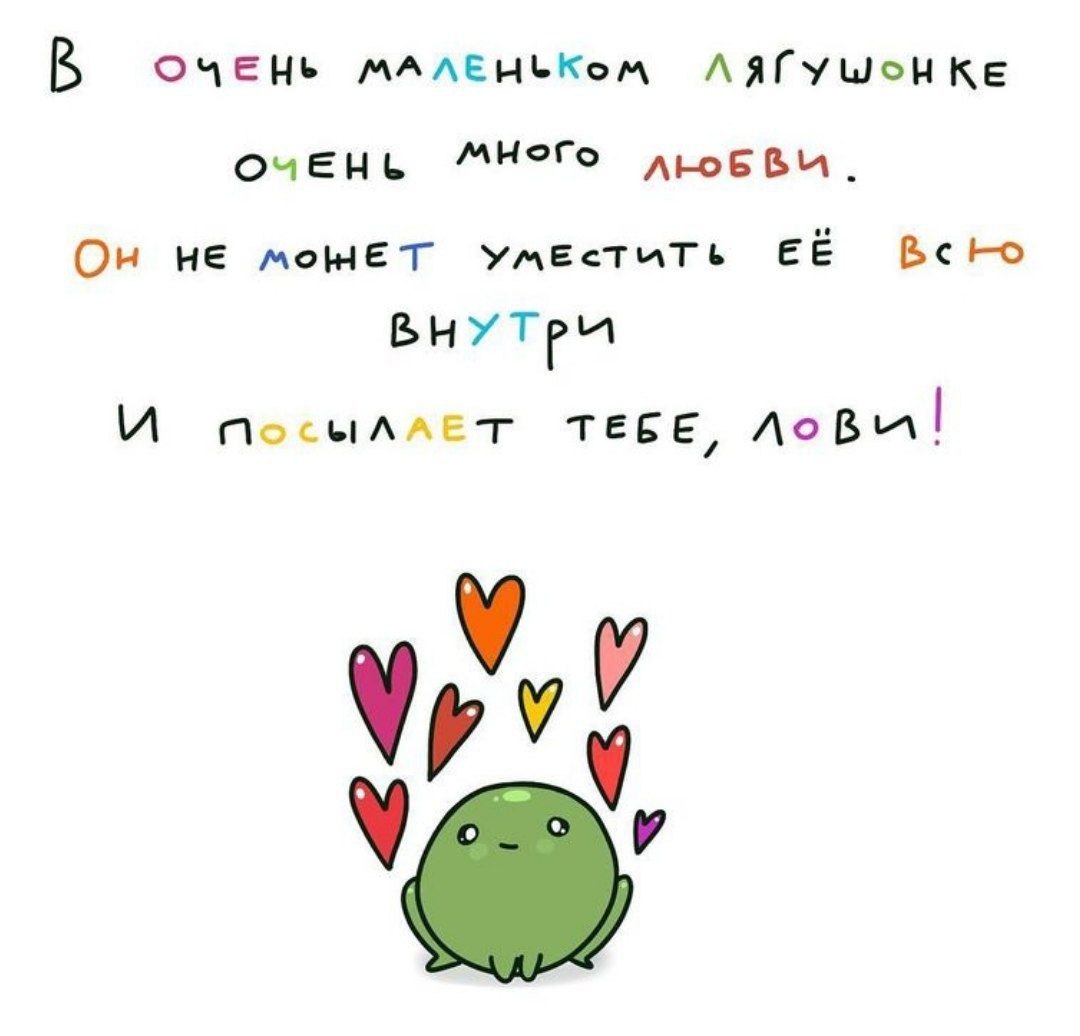 В очень маленьком лягушонке
очень много любви.
Он не может уместить её всю
внутри
и посылает тебе, лови!